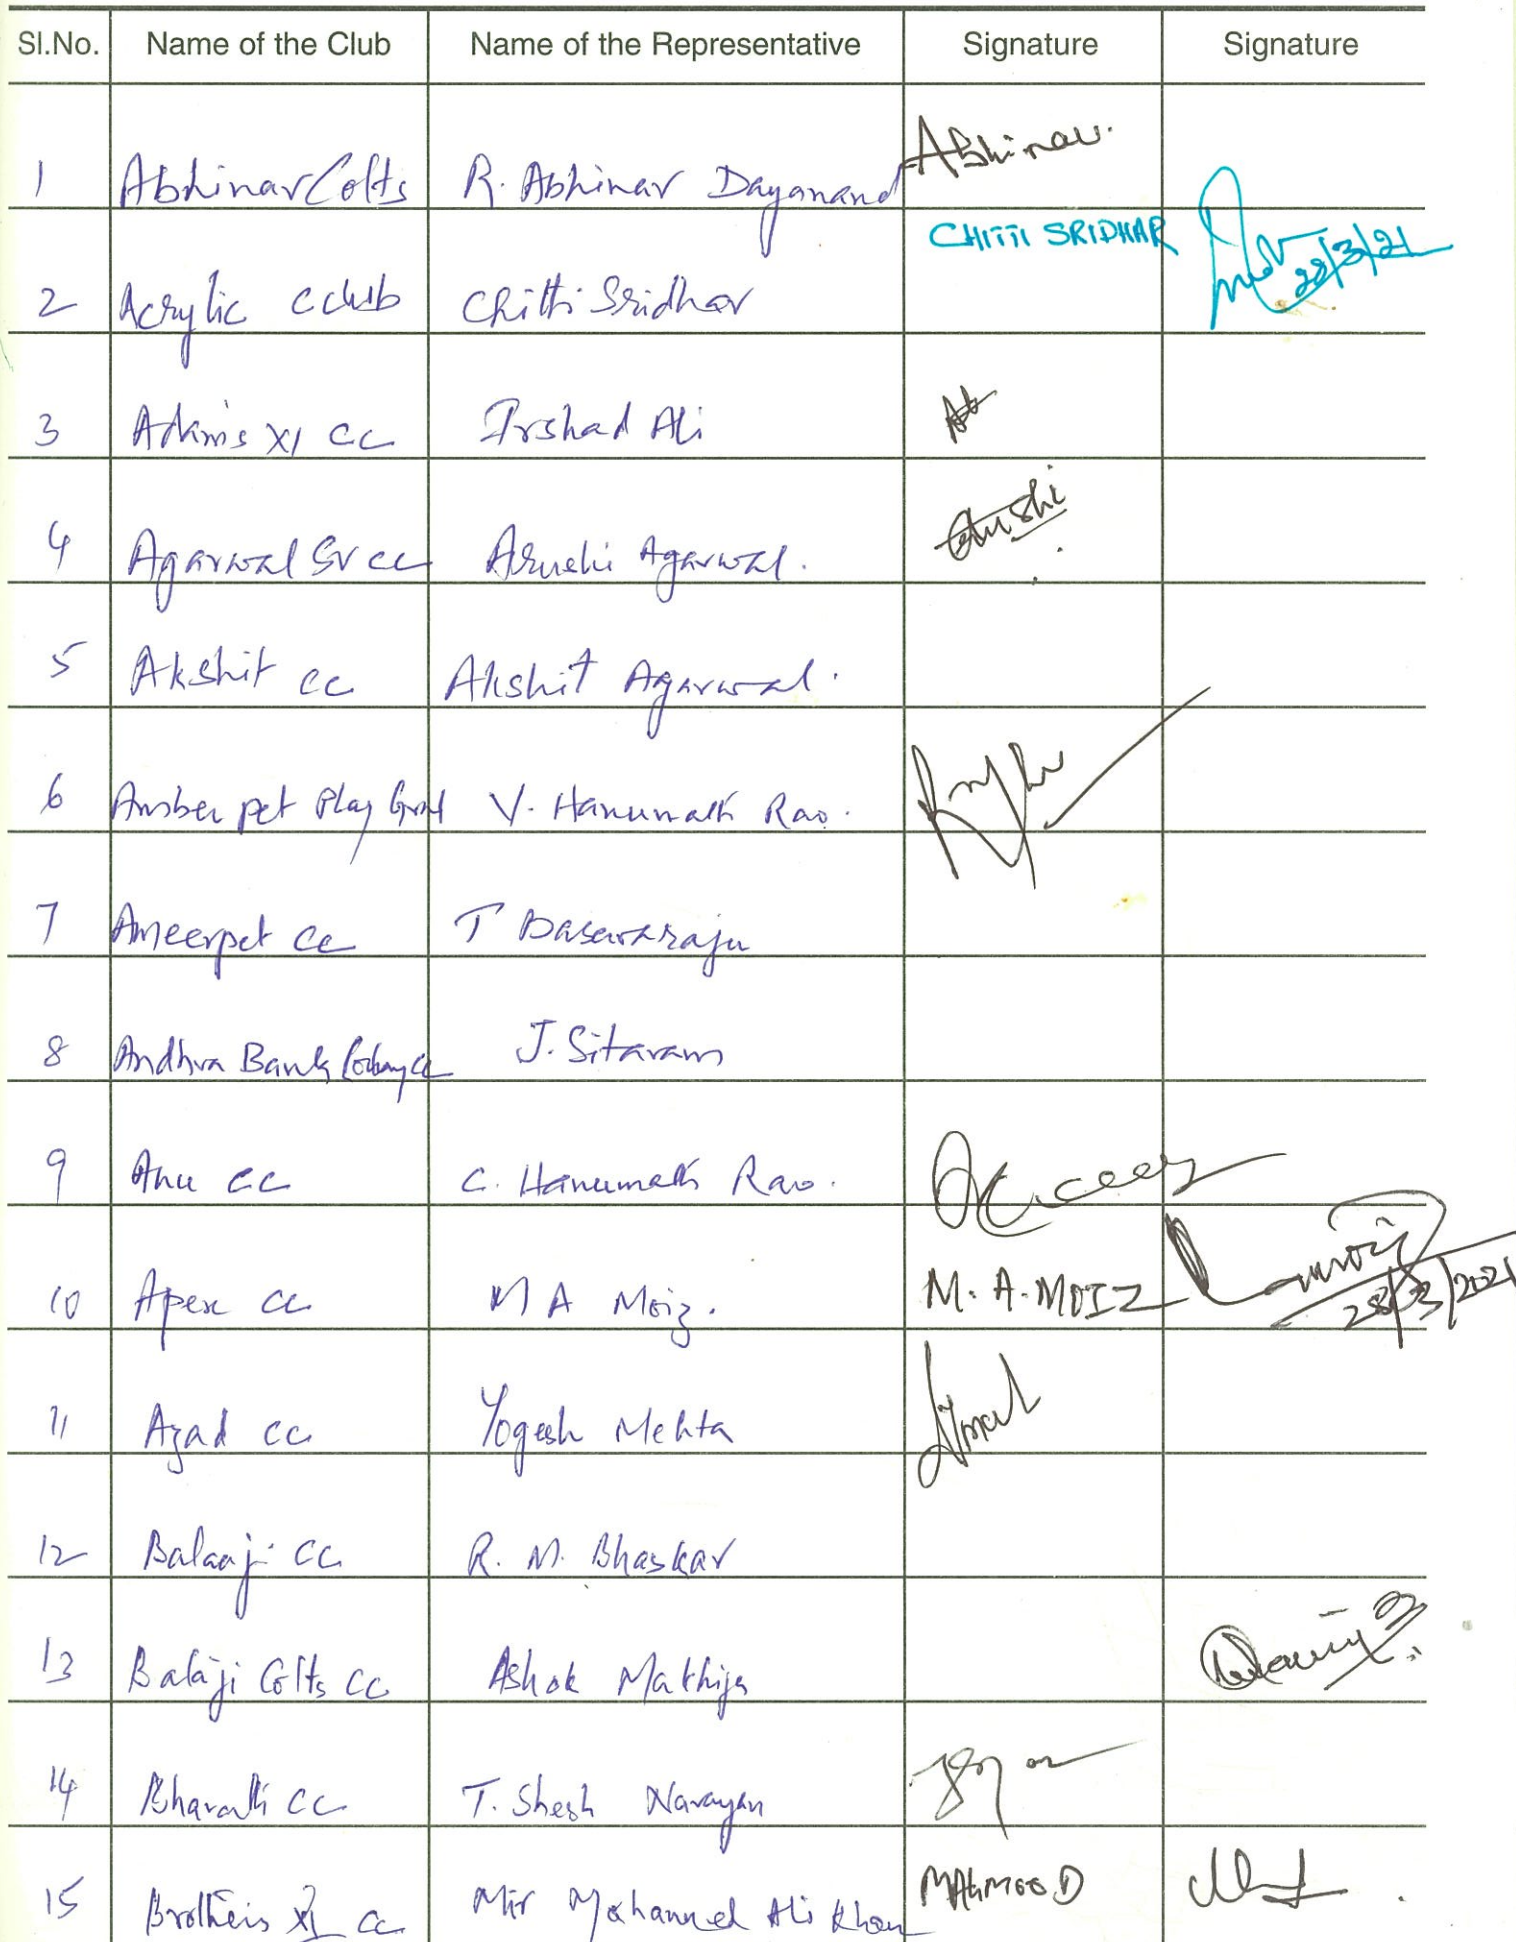 Sl.No. Name of the Club Name of the Representative Signature Signature
1 Abhinav Colts R. Abhinav Dayanand Abhinav.
2 Acrylic cclub Chitti Sridhar CHITTI SRIDHAR 28/3/21
3 Adams XI CC Irshad Ali
4 Agarwal Sr CC Arushi Agarwal.
5 Akshit CC Akshit Agarwal.
6 Amberpet Play Grnd V. Hanumanth Rao.
7 Ameerpet CC T Basavaraju
8 Andhra Bank Colony CC J. Sitaram
9 Anu CC C. Hanumanth Rao.
10 Apex CC M A Moiz. M. A. MOIZ 28/3/2021
11 Azad CC Yogesh Mehta
12 Balaaji CC R. M. Bhaskar
13 Balaji Colts CC Ashok Mathija
14 Bharath CC T. Shesh Narayan
15 Brothers XI CC Mir Mohammed Ali Khan MAHMOOD